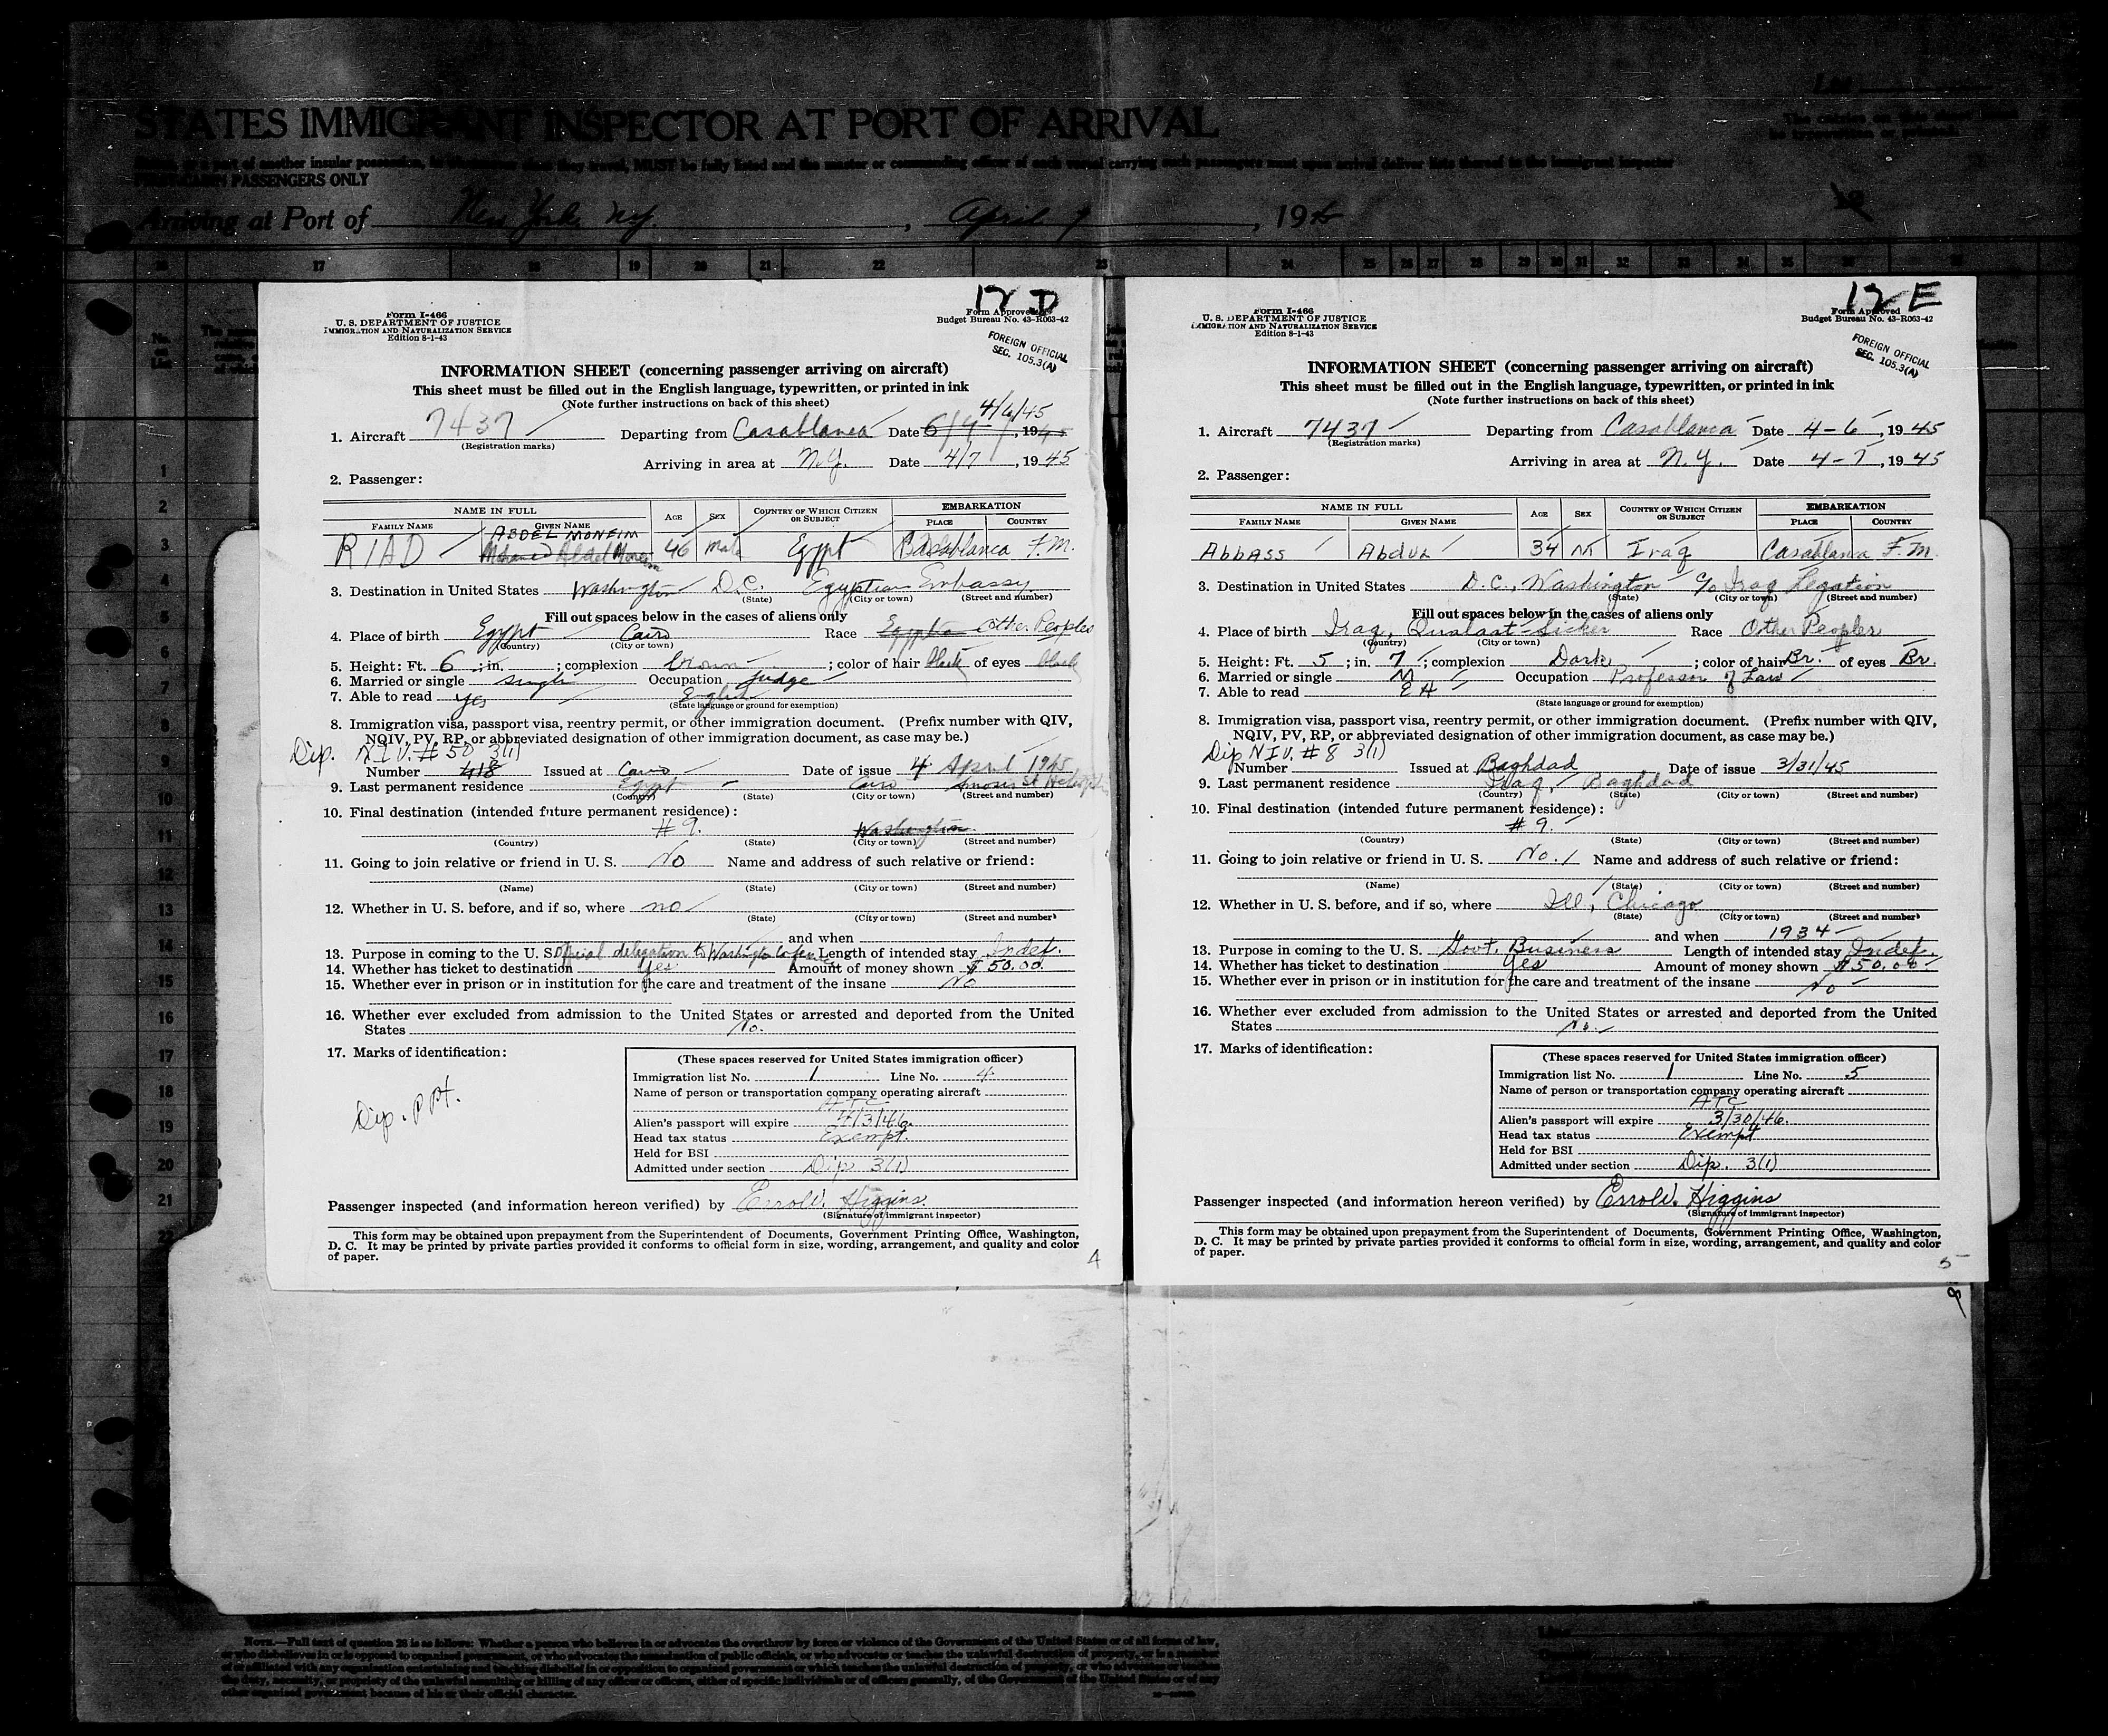 STATES IMMIGRANT INSPECTOR AT PORT OF ARRIVAL
PASSENGERS ONLY
Arriving at Port of New York, N.Y. , April 7 , 1945
17 18 19 20 21 22 23 24 25 26 27 28 29 30 31 32 33 34 35
12 D
Form I-466
U. S. DEPARTMENT OF JUSTICE
IMMIGRATION AND NATURALIZATION SERVICE
Edition 8-1-43
Form Approved
Budget Bureau No. 43-R063-42
FOREIGN OFFICIAL
SEC. 105.3(A)
INFORMATION SHEET (concerning passenger arriving on aircraft)
This sheet must be filled out in the English language, typewritten, or printed in ink
(Note further instructions on back of this sheet)
4/6/45
1. Aircraft 7437 Departing from Casablanca Date 6/4/, 1945
(Registration marks)
Arriving in area at N.Y. Date 4/7, 1945
2. Passenger:
NAME IN FULL AGE SEX COUNTRY OF WHICH CITIZEN OR SUBJECT EMBARKATION
FAMILY NAME GIVEN NAME PLACE COUNTRY
ABDEL MONEIM
RIAD Mohamed Abdel Moneim 46 male Egypt Casablanca F.M.
3. Destination in United States Washington D.C. Egyptian Embassy
(State) (City or town) (Street and number)
Fill out spaces below in the cases of aliens only
4. Place of birth Egypt Cairo Race Egyptian Other Peoples
(Country) (City or town)
5. Height: Ft. 6; in. ; complexion brown ; color of hair black of eyes black
6. Married or single single Occupation Judge
7. Able to read yes English
(State language or ground for exemption)
8. Immigration visa, passport visa, reentry permit, or other immigration document. (Prefix number with QIV,
NQIV, PV, RP, or abbreviated designation of other immigration document, as case may be.)
Dip. N.I.V. # 50 3(1)
Number 418 Issued at Cairo Date of issue 4 April 1945
9. Last permanent residence Egypt - Cairo
(Country) (State) (City or town) (Street and number)
10. Final destination (intended future permanent residence):
# 9. Washington
(Country) (State) (City or town) (Street and number)
11. Going to join relative or friend in U. S. No Name and address of such relative or friend:
(Name) (State) (City or town) (Street and number)
12. Whether in U. S. before, and if so, where no
(State) (City or town) (Street and number)
and when
13. Purpose in coming to the U. S. Official delegation to Washington Length of intended stay Indef.
14. Whether has ticket to destination Yes Amount of money shown $ 50.00
15. Whether ever in prison or in institution for the care and treatment of the insane No
16. Whether ever excluded from admission to the United States or arrested and deported from the United
States No.
17. Marks of identification:
Dip. PPt.
(These spaces reserved for United States immigration officer)
Immigration list No. 1 Line No. 4
Name of person or transportation company operating aircraft
ATC
Alien's passport will expire 4/3/46.
Head tax status Exempt.
Held for BSI
Admitted under section Dip. 3(1)
Passenger inspected (and information hereon verified) by Errol W. Higgins
(Signature of immigrant inspector)
This form may be obtained upon prepayment from the Superintendent of Documents, Government Printing Office, Washington,
D. C. It may be printed by private parties provided it conforms to official form in size, wording, arrangement, and quality and color
of paper.
4
12 E
Form I-466
U. S. DEPARTMENT OF JUSTICE
IMMIGRATION AND NATURALIZATION SERVICE
Edition 8-1-43
Form Approved
Budget Bureau No. 43-R063-42
FOREIGN OFFICIAL
SEC. 105.3(A)
INFORMATION SHEET (concerning passenger arriving on aircraft)
This sheet must be filled out in the English language, typewritten, or printed in ink
(Note further instructions on back of this sheet)
1. Aircraft 7437 Departing from Casablanca Date 4-6, 1945
(Registration marks)
Arriving in area at N.Y. Date 4-7, 1945
2. Passenger:
NAME IN FULL AGE SEX COUNTRY OF WHICH CITIZEN OR SUBJECT EMBARKATION
FAMILY NAME GIVEN NAME PLACE COUNTRY
ABBASS ABDUL 34 M Iraq Casablanca F.M.
3. Destination in United States D.C., Washington c/o Iraq Legation
(State) (City or town) (Street and number)
Fill out spaces below in the cases of aliens only
4. Place of birth Iraq, Qualaat-Sicker Race Other Peoples
(Country) (City or town)
5. Height: Ft. 5; in. 7; complexion Dark ; color of hair Br. of eyes Br.
6. Married or single M Occupation Professor of Law
7. Able to read E A
(State language or ground for exemption)
8. Immigration visa, passport visa, reentry permit, or other immigration document. (Prefix number with QIV,
NQIV, PV, RP, or abbreviated designation of other immigration document, as case may be.)
Dip N.I.V. # 8 3(1)
Number Issued at Baghdad Date of issue 3/31/45
9. Last permanent residence Iraq, Baghdad
(Country) (State) (City or town) (Street and number)
10. Final destination (intended future permanent residence):
# 9.
(Country) (State) (City or town) (Street and number)
11. Going to join relative or friend in U. S. No. Name and address of such relative or friend:
(Name) (State) (City or town) (Street and number)
12. Whether in U. S. before, and if so, where Ill, Chicago
(State) (City or town) (Street and number)
and when 1934
13. Purpose in coming to the U. S. Govt. Business Length of intended stay Indef.
14. Whether has ticket to destination Yes Amount of money shown $50.00
15. Whether ever in prison or in institution for the care and treatment of the insane No
16. Whether ever excluded from admission to the United States or arrested and deported from the United
States No.
17. Marks of identification:
(These spaces reserved for United States immigration officer)
Immigration list No. 1 Line No. 5
Name of person or transportation company operating aircraft
ATC
Alien's passport will expire 3/30/46.
Head tax status Exempt
Held for BSI
Admitted under section Dip. 3(1)
Passenger inspected (and information hereon verified) by Errol W. Higgins
(Signature of immigrant inspector)
This form may be obtained upon prepayment from the Superintendent of Documents, Government Printing Office, Washington,
D. C. It may be printed by private parties provided it conforms to official form in size, wording, arrangement, and quality and color
of paper.
5
1
2
3
4
5
6
7
8
9
10
11
12
13
14
15
16
17
18
19
20
21
22
NOTE.—Full text of question 28 is as follows: Whether a person who believes in or advocates the overthrow by force or violence of the Government of the United States or of all forms of law,